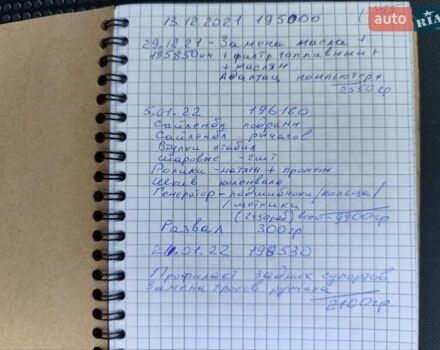 13.12.2021 195000
auto RIA
29.12.21 - Замена масла +
195850км + фильтр топливный +
+ маслян
Адаптац компьютера
2550 гр
5.01.22 196160
Сайлентбл подрамн
Сайлентбл рычагов
Втулки стабил
Шаровые - 2шт
Ролики - натяж + промеж
Шкив коленвала
Генератор - подшибники/кольца/
/щетники
(2450раб) всего - 9900гр
Развал 300гр
21.01.22 198530
Профилакт задних супортов
Замена тросов ручника
2100гр